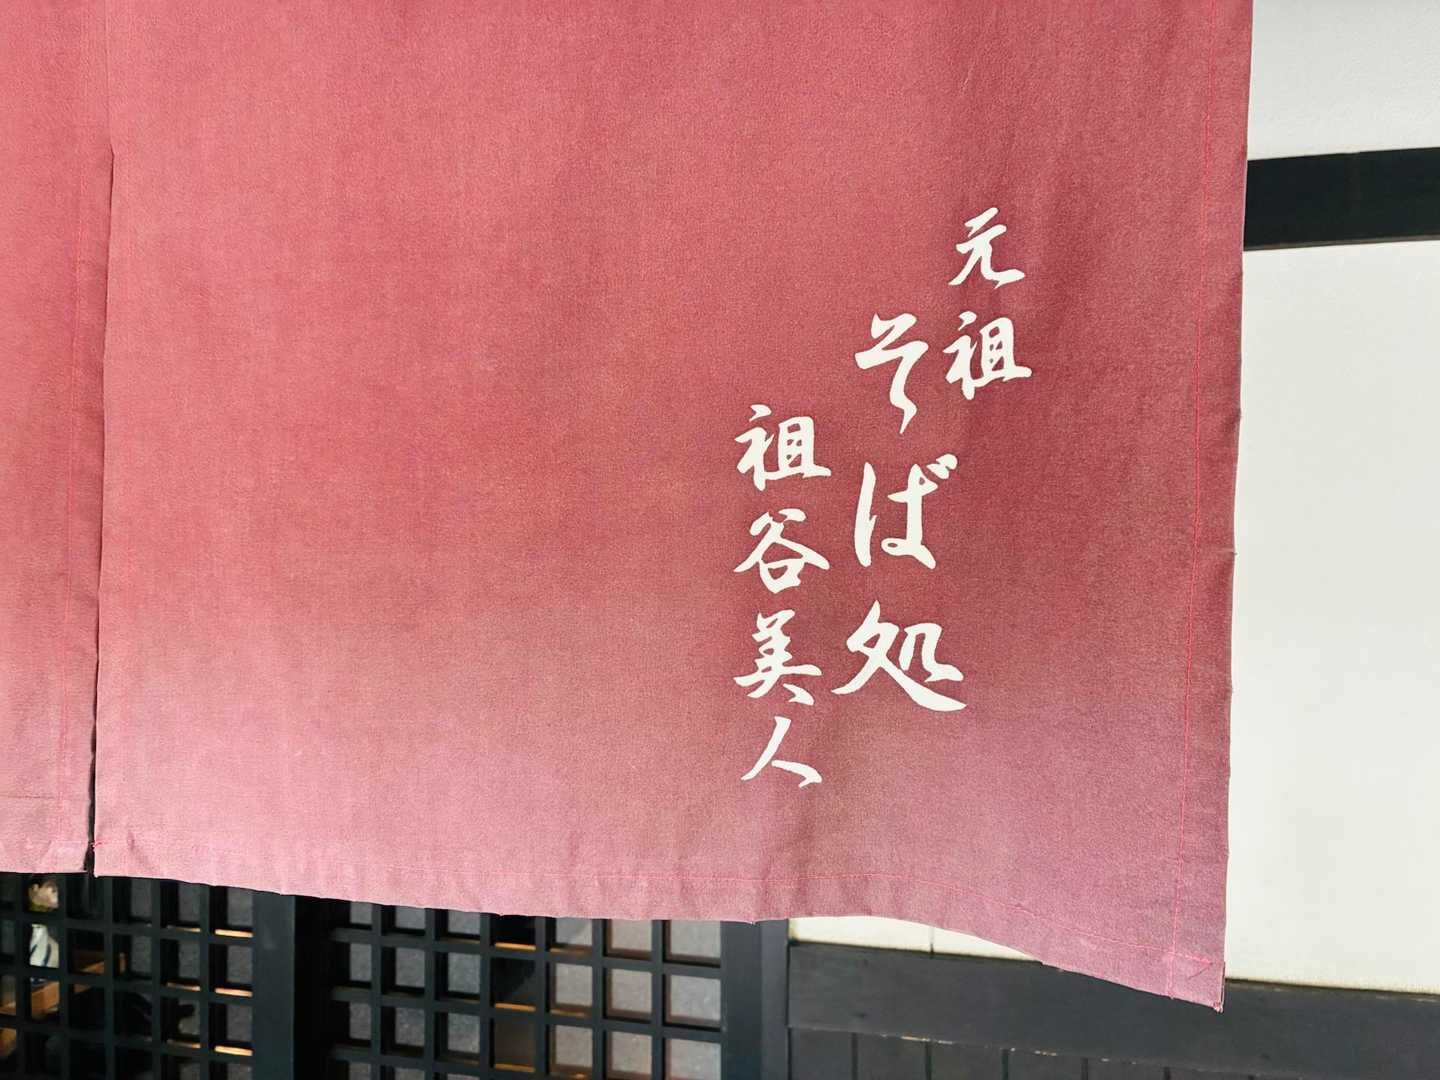 元祖
そば処
祖谷美人